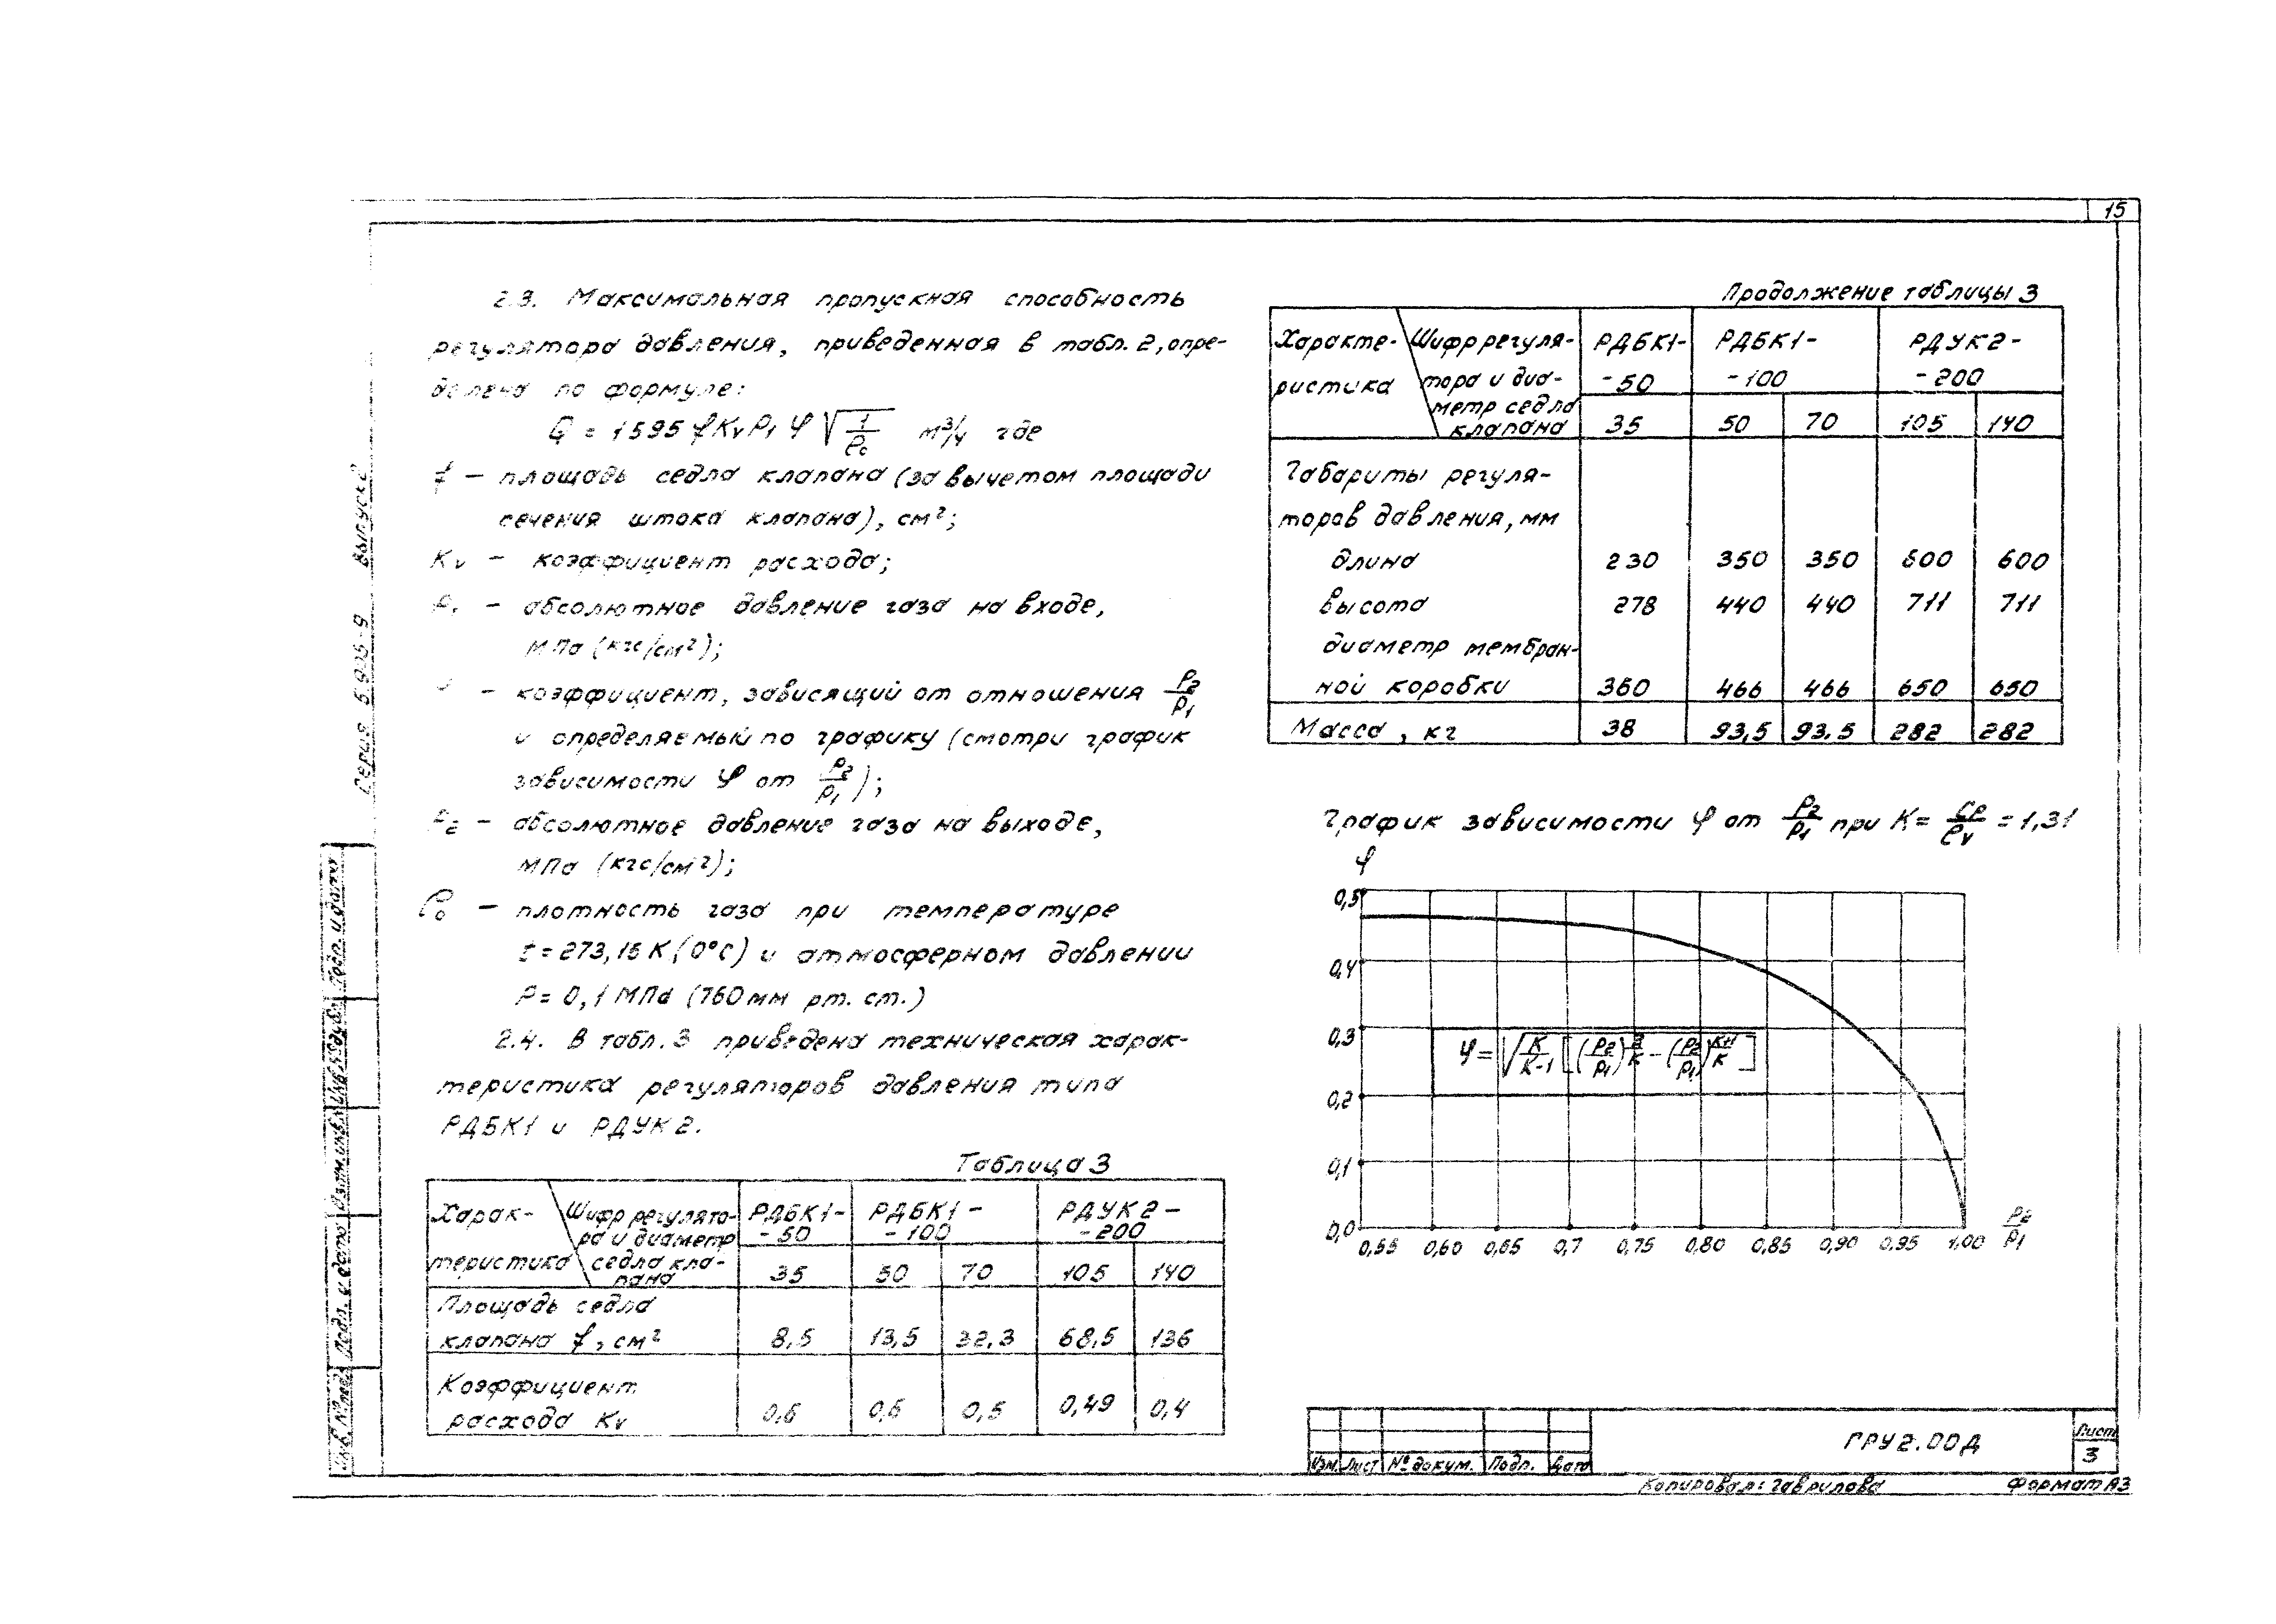 15
2.3. Максимальная пропускная способность
регулятора давления, приведенная в табл. 2, опре-
делена по формуле:
Q = 1595 f Kv P1 φ √(1/ρ0) м³/ч где
f – площадь седла клапана (за вычетом площади
сечения штока клапана), см²;
Kv – коэффициент расхода;
P1 – абсолютное давление газа на входе,
МПа (кгс/см²);
– коэффициент, зависящий от отношения P2/P1
и определяемый по графику (смотри график
зависимости φ от P2/P1);
P2 – абсолютное давление газа на выходе,
МПа (кгс/см²);
ρ0 – плотность газа при температуре
t = 273,15 К (0°С) и атмосферном давлении
Р = 0,1 МПа (760 мм рт. ст.)
2.4. В табл. 3 приведена техническая харак-
теристика регуляторов давления типа
РДБК1 и РДУК2.
Таблица 3
Харак- Шифр регулято- РДБК1- РДБК1- РДУК2-
ра и диаметр -50 -100 -200
теристика седла кла- 35 50 70 105 140
пана
Площадь седла
клапана f, см² 8,5 13,5 32,3 68,5 136
Коэффициент
расхода Kv 0,6 0,6 0,5 0,49 0,4
Продолжение таблицы 3
Характе- Шифр регуля- РДБК1- РДБК1- РДУК2-
ристика тора и диа- -50 -100 -200
метр седла
клапана 35 50 70 105 140
Габариты регуля-
торов давления, мм
длина 230 350 350 600 600
высота 278 440 440 711 711
диаметр мембран-
ной коробки 360 466 466 650 650
Масса, кг 38 93,5 93,5 282 282
График зависимости φ от P2/P1 при K = Cp/Cv = 1,31
φ
0,5
0,4
0,3
φ = √(K/(K-1) [(P2/P1)^(2/K) – (P2/P1)^((K+1)/K)])
0,2
0,1
0,0
0,55 0,60 0,65 0,7 0,75 0,80 0,85 0,90 0,95 1,00 P2/P1
Серия 5.905-9 Выпуск 2
Подп. и дата
Взам. инв. №
Подп. и дата
Инв. № подл.
Изм. Лист № докум. Подп. Дата
ГРУ2.00Д
Лист
3
Копировал: Гаврилова Формат А3